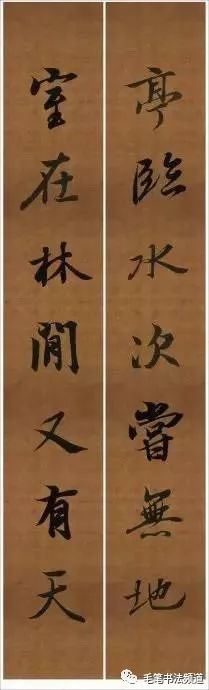 亭臨水次嘗無地
室在林間又有天
毛笔书法频道